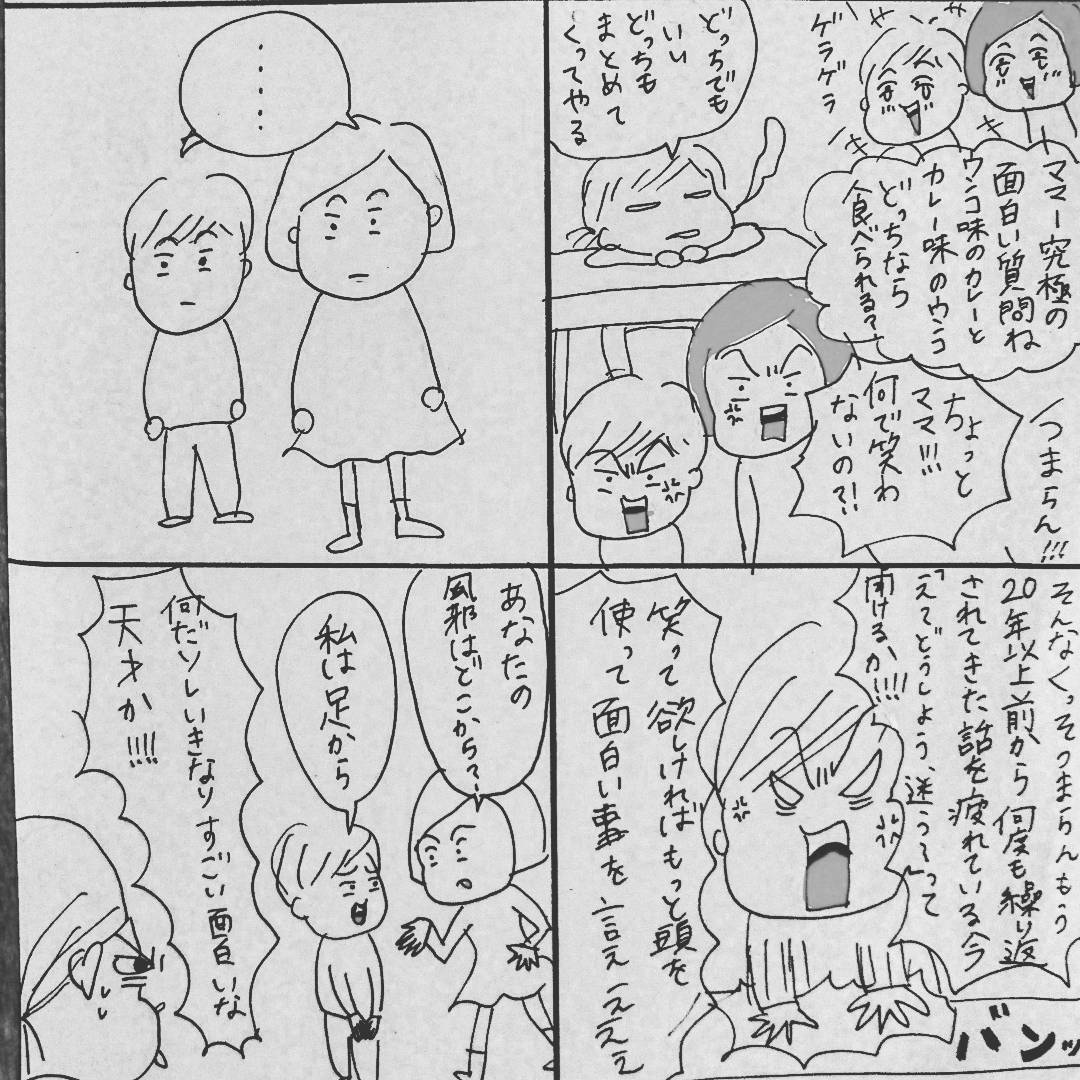 ゲラゲラ
ママー究極の
面白い質問ね
ウンコ味のカレーと
カレー味のウンコ
どっちなら
食べられる?
どっちでも
いい
どっちも
まとめて
くってやる
つまらん!!!
ちょっと
ママ!!!
何で笑わ
ないの?!
そんなくっそつまらんもう
20年以上前から何度も繰り返
されてきた話を疲れている今
「えてどうしよう、迷う〜」って
聞けるか!!!!
笑って欲しければもっと頭を
使って面白い事を言えぇぇぇ
バンッ
・・・・・
あなたの
風邪はどこから?
私は足から
何だソレいきなりすごい面白いな
天才か!!!!